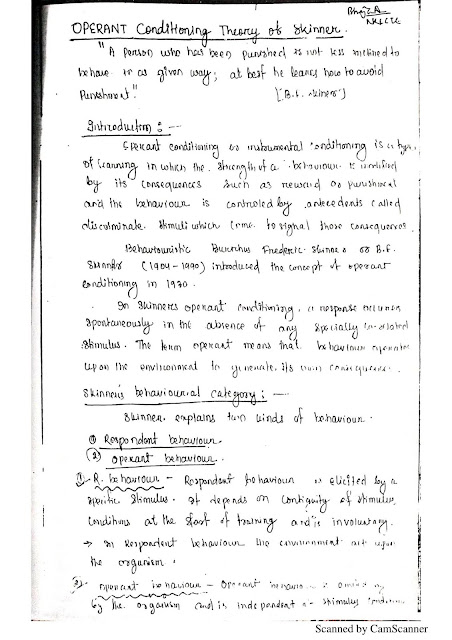 OPERANT Conditioning Theory of Skinner.
"A person who has been punished is not less inclined to
behave in a given way; at best he learns how to avoid
Punishment."
[B.F. Skiners]
Introduction :-
Operant conditioning or instrumental conditioning is a type
of learning in which the strength of a behaviour is modified
by its consequences such as reward or punishment
and the behaviour is controled by antecedents called
discriminate stimuli which come to signal those consequences.
Behaviouristic Burrhus Frederic Skinner or B.F.
Skinner (1904-1990) introduced the concept of operant
conditioning in
In Skinners operant conditioning, a response occurs
Spontaneously in the absence of any Specially
stimulus. The term operant means that behaviour operates
upon the environment to generate its own consequences.
Skinner's behaviourial category :-
Skinner explains two kinds of behaviour.
① Respondent behaviour.
② operant behaviour.
① R. behaviour - Respondent behaviour is elicited by a
specific stimulus. It depends on contiguity of stimulus
conditions at the start of training and is involuntary.
→ In respondent behaviour the environment act upon
the organism.
2 operant behaviour - Operant behaviour is
by the organism and is independent stimulus
Scanned by CamScanner